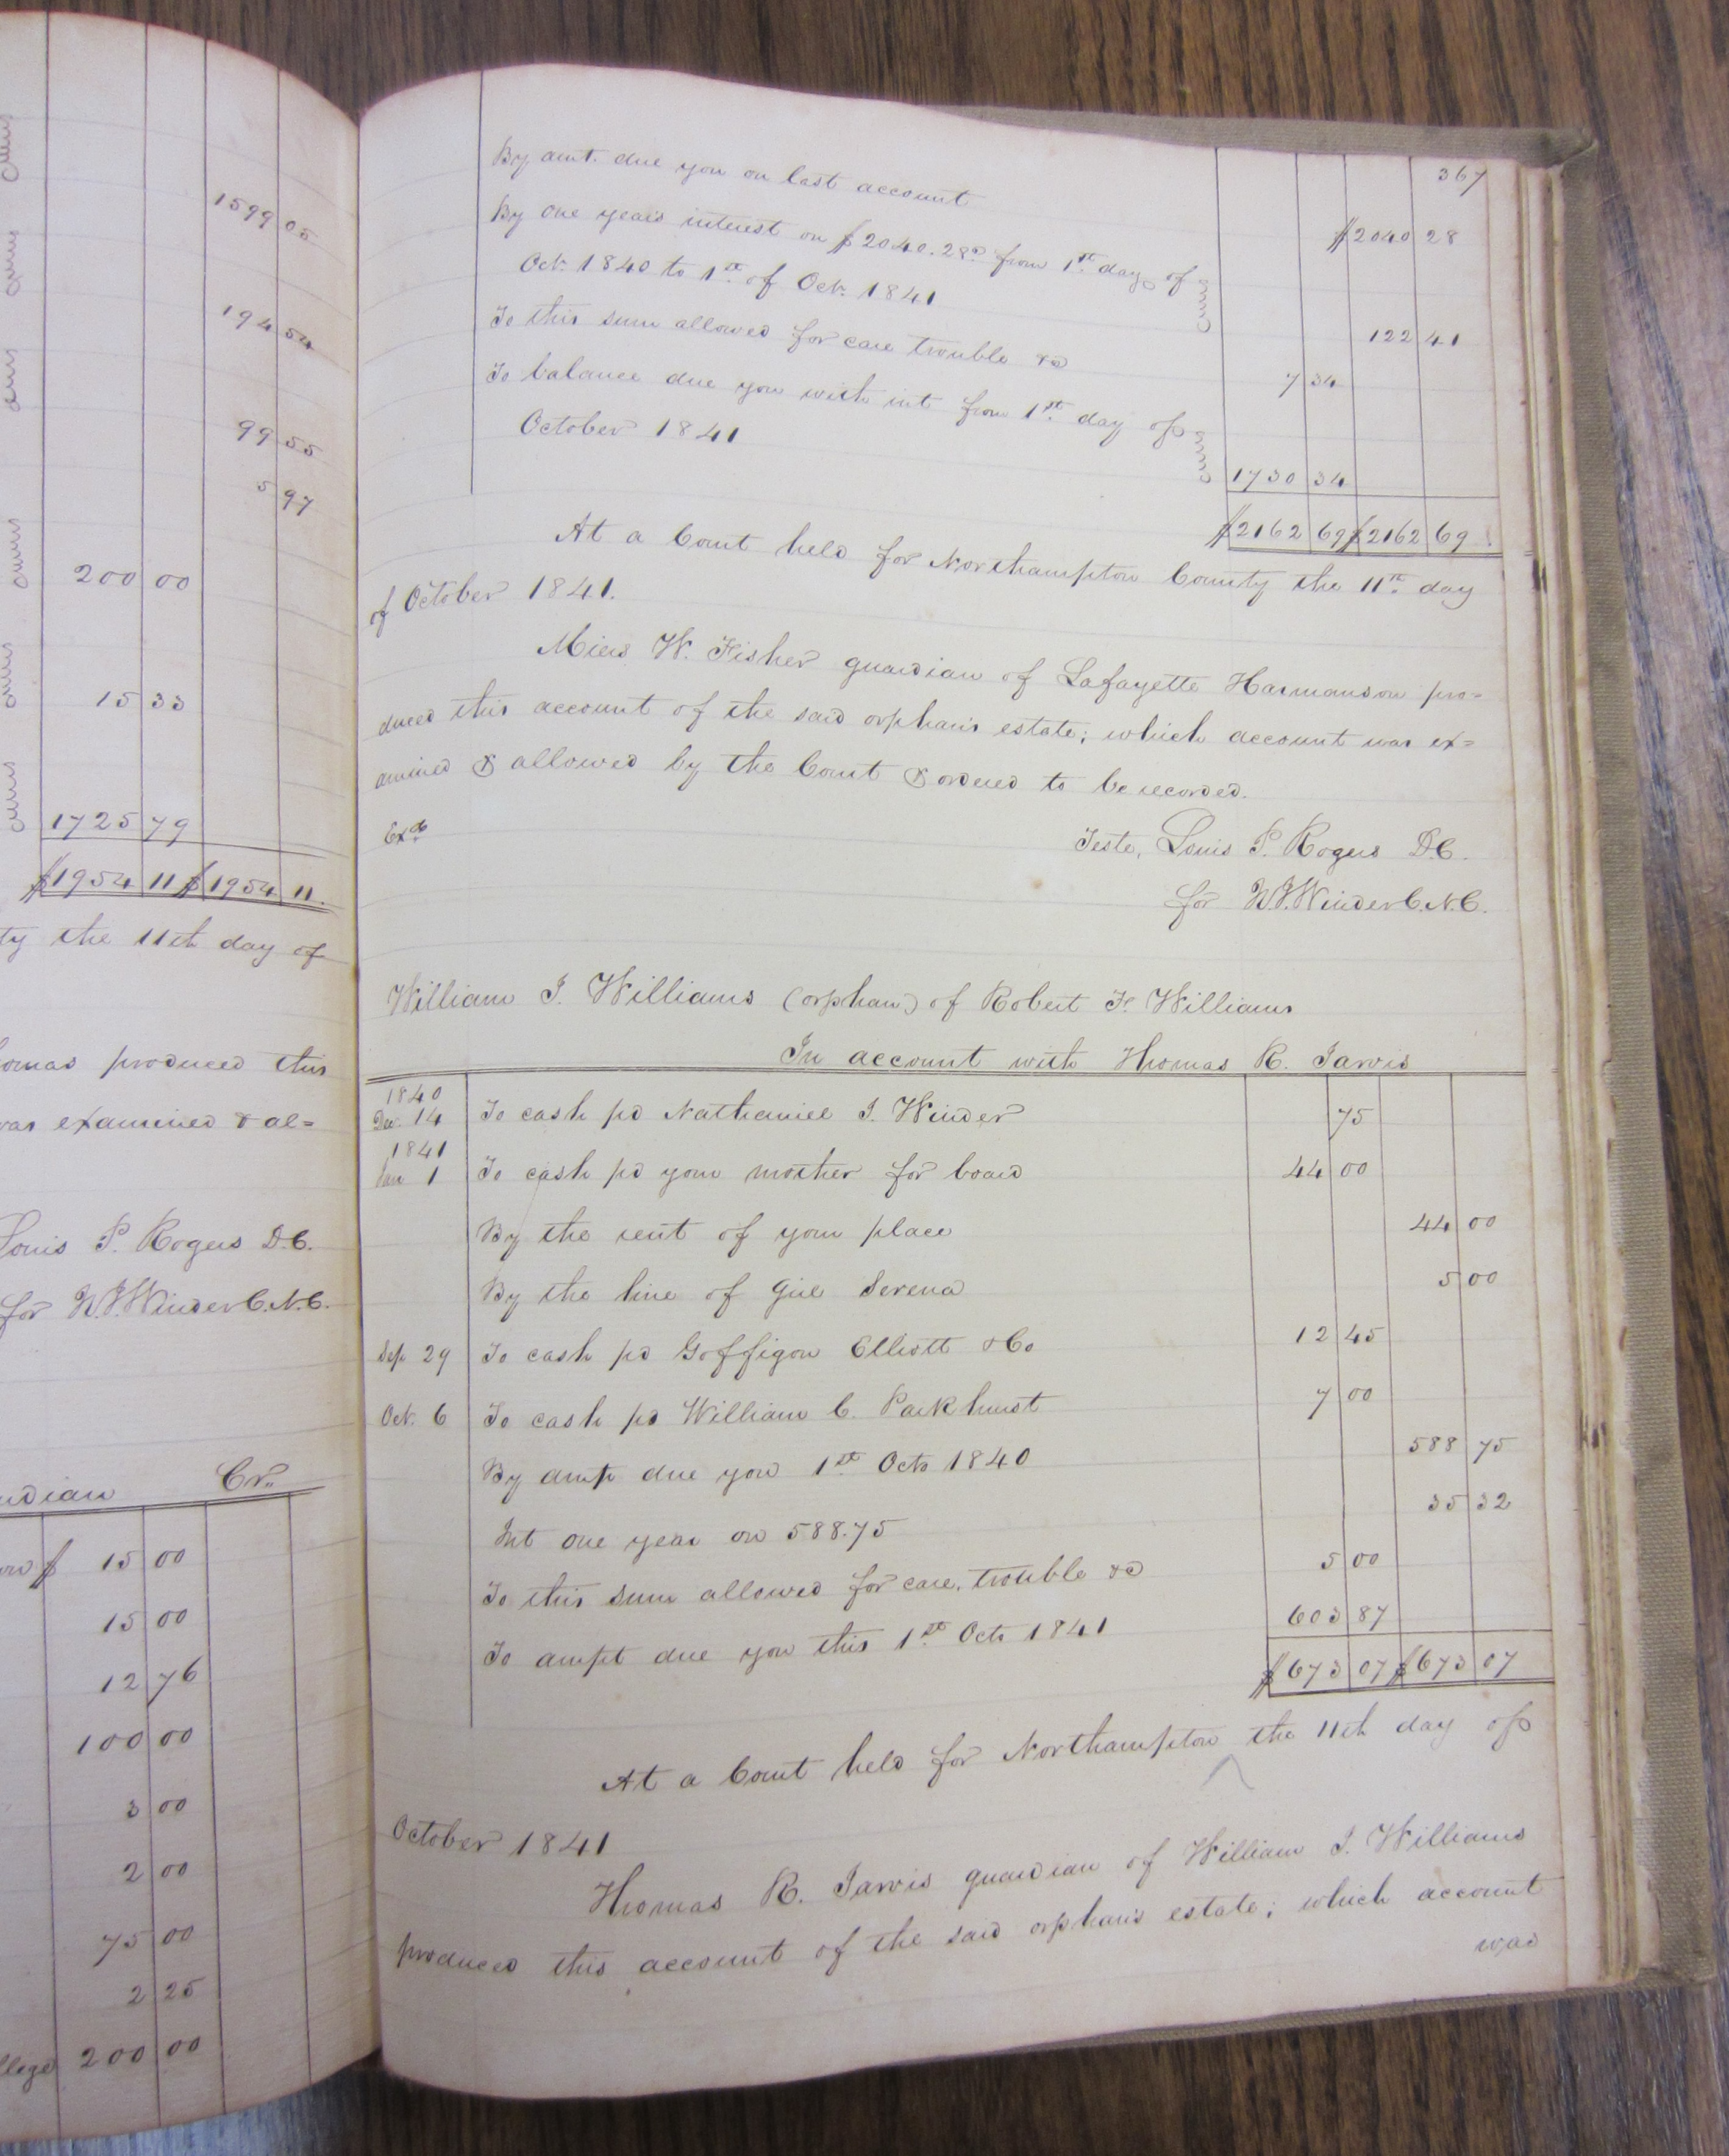 1599 05
194 54
99 55
5 97
200 00
15 33
1725 79
$1954 11 $1954 11.
ty the 11th day of
homas produced this
was examined & al=
Louis P. Rogers D.C.
for N.J. Winder C.N.C.
Cr.
$ 15 00
15 00
12 76
100 00
3 00
2 00
75 00
2 25
200 00
367
By amt. due you on last account $2040 28
By one years interest on $2040.28c from 1st day of
Oct. 1840 to 1st of Oct. 1841 122 41
To this sum allowed for care trouble &c 7 34
To balance due you with int from 1st day of
October 1841 1730 34
$2162 69 $2162 69.
At a Court held for Northampton County the 11th day
of October 1841.
Miers W. Fisher guardian of Lafayette Harmanson pro=
duced this account of the said orphan's estate; which account was ex=
amined & allowed by the Court & ordered to be recorded.
Exd
Teste, Louis P. Rogers D.C.
for N.J. Winder C.N.C.
William J. Williams (orphan) of Robert F. Williams
In account with Thomas R. Jarvis
1840
Dec. 14 To cash pd Nathaniel J. Winder 75
1841
Jan 1 To cash pd your mother for board 44 00
By the rent of your place 44 00
By the hire of girl Serena 5 00
Sep 29 To cash pd Goffigon Elliott & Co 12 45
Oct. 6 To cash pd William C. Parkhurst 7 00
By amt due you 1st Octo 1840 588 75
Int one year on 588.75 35 32
To this sum allowed for care, trouble &c 5 00
To ampt due you this 1st Octo 1841 603 87
$673 07 $673 07
At a Court held for Northampton ^ the 11th day of
October 1841
Thomas R. Jarvis guardian of William J. Williams
produced this account of the said orphan's estate; which account
was